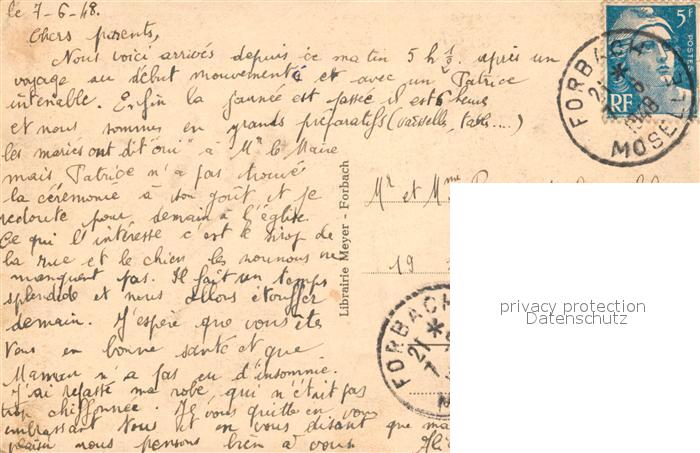 le 7-6-48.
Chers parents,
Nous voici arrivés depuis ce matin 5 h ½ après un
voyage au début mouvementé et avec un Patrice
intenable. Enfin la journée est passée il est 6 heures
et nous sommes en grands préparatifs (vaisselles, table....)
les mariés ont dit "oui" à Mr le Maire
mais Patrice n'a pas trouvé
la cérémonie à son goût et je
redoute pour demain à l'église.
Ce qui l'intéresse c'est le de
la rue et le chien les nounous ne
manquent pas. Il fait un temps
splendide et nous allons étouffer
demain. J'espère que vous êtes
tous en bonne santé et que
Maman n'a pas eu d'insomnie.
J'ai repassé ma robe, qui n'était pas
trop chiffonnée. Je vous quitte en vous
embrassant tous et en vous disant que
plaisir nous pensons bien à vous.
Librairie Meyer - Forbach
Mr et Mme
19
5F
POSTES
RF
FORBACH
21 *
1948
MOSELLE
FORBACH
21 *
privacy protection
Datenschutz